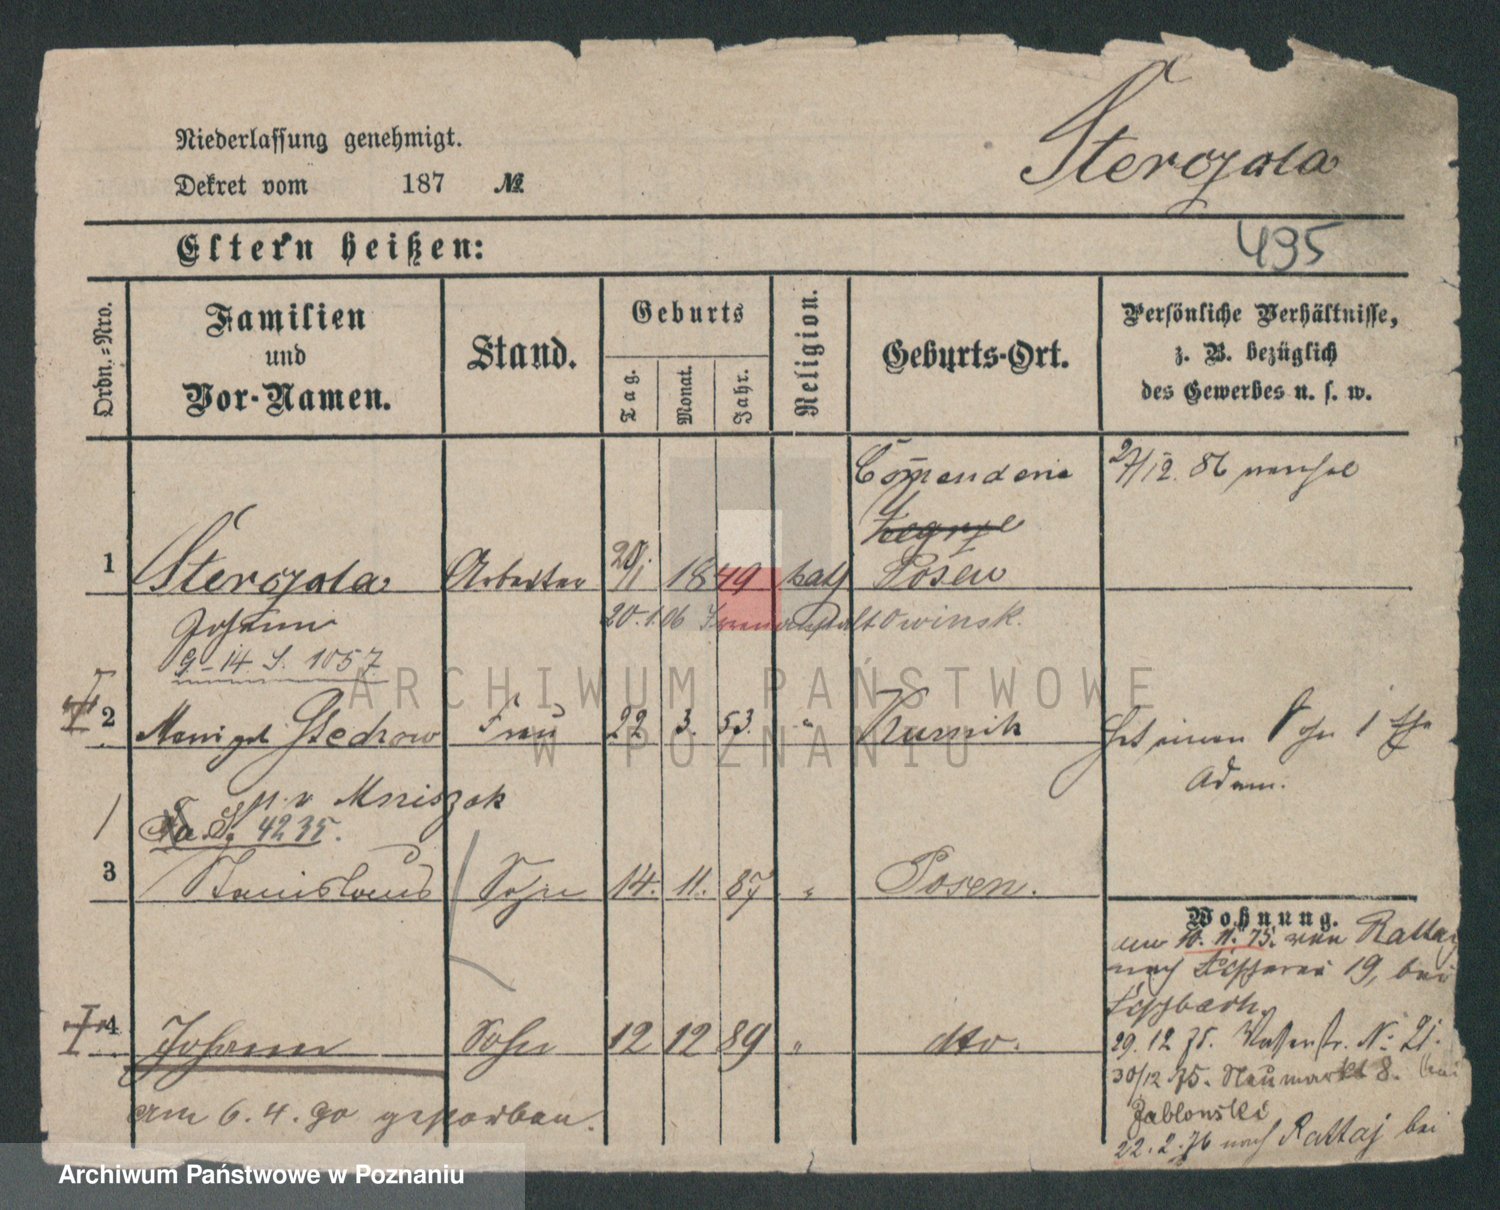 Niederlassung genehmigt.
Dekret vom 187 №
Sterczala
495
Eltern heißen:
Ordn.-Nro.
Familien
und
Vor-Namen.
Stand.
Geburts
Tag.
Monat.
Jahr.
Religion.
Geburts-Ort.
Persönliche Verhältnisse,
z. B. bezüglich
des Gewerbes u. s. w.
Com̄enderie
2/12. 86
1 Sterczala Arbeiter 20/1 1849 kath Posen
Johann
20.1.06 Irrenanstalt Owinsk.
9-14 S. 1057
2 Frau 22 3. 53. " Kurnik
hat einen Sohn
Adam.
Mniszak
S. 4235.
3 Stanislaus Sohn 14. 11. 87 " Posen.
Wohnung.
10. 11. 75. von Rattaj
nach Fischerei 19, bei
Fischbach.
4 Johann Sohn 12 12 89 " dto.
29. 12 75. Wasserstr. N: 21.
30/12 75. Neumarkt 8. bei
Jablonski
am 6. 4. 90 gestorben.
22. 2. 76 nach Rattaj bei
ARCHIWUM PAŃSTWOWE
W POZNANIU
Archiwum Państwowe w Poznaniu